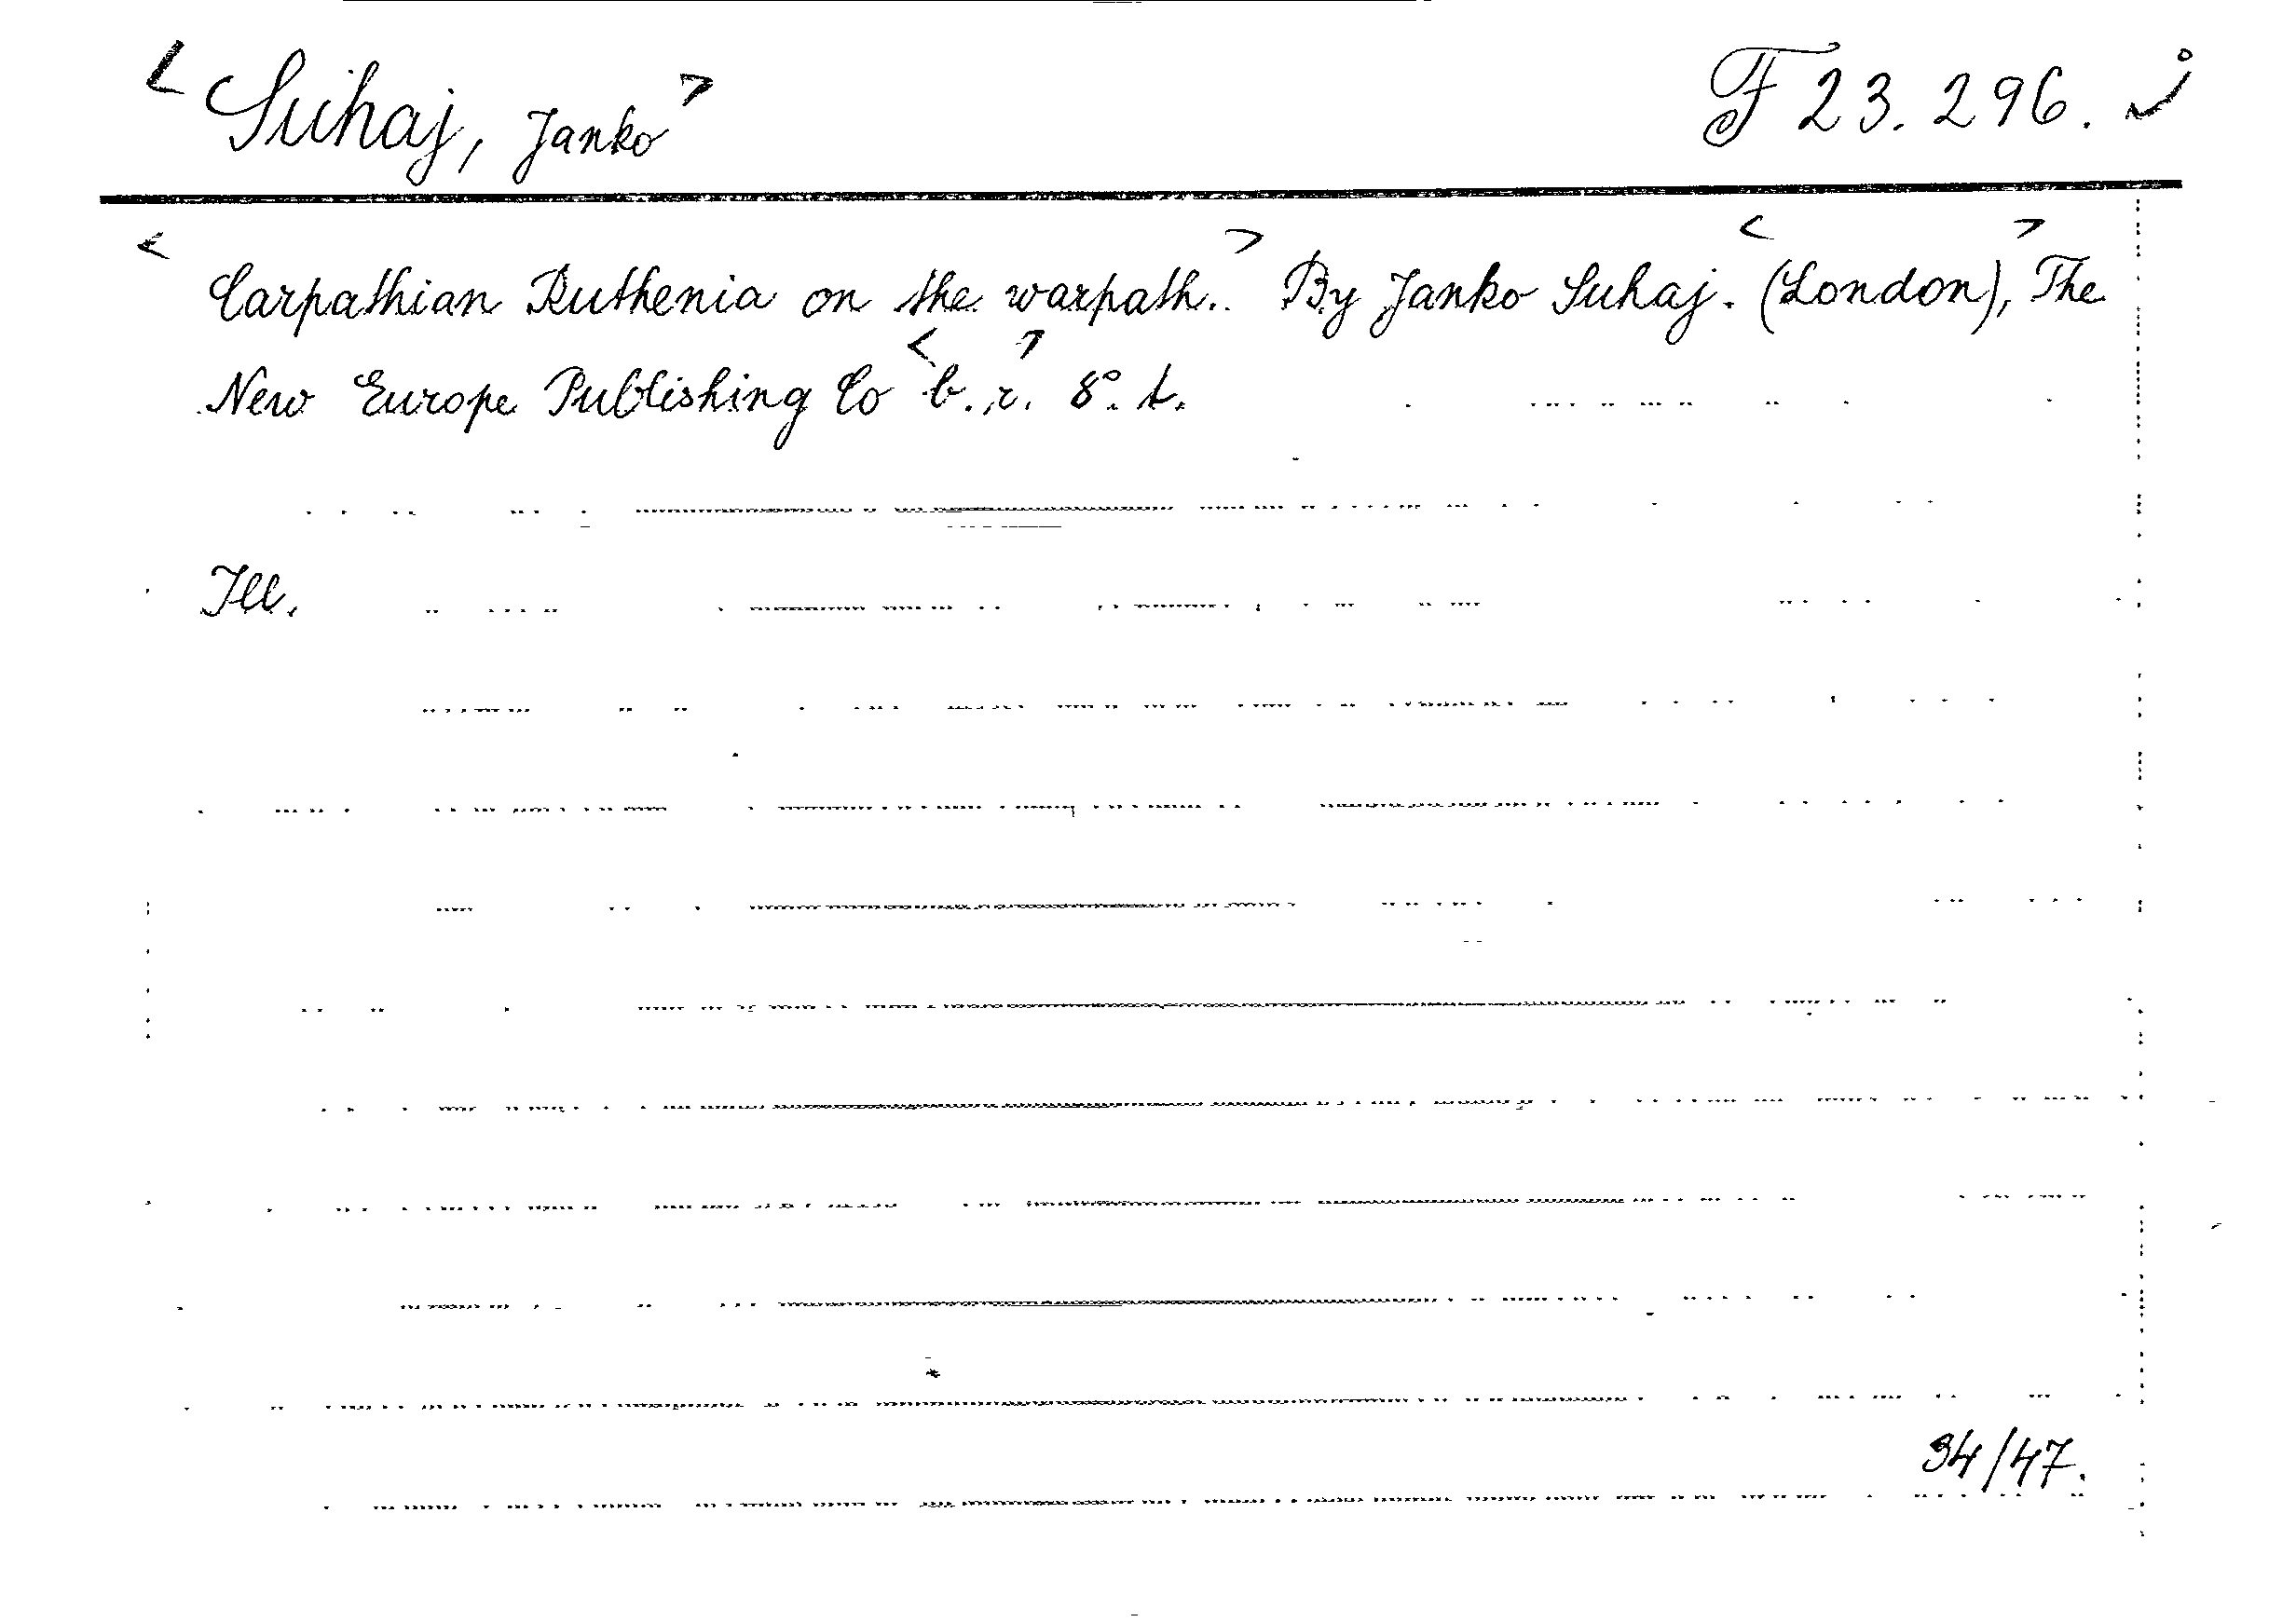 < Suhaj, Janko > F 23.296. ✓
< Carpathian Ruthenia on the warpath. > By Janko Suhaj. < (London), > The
New Europe Publishing Co < b. r. > 8°. t.
Ill.
34/47.